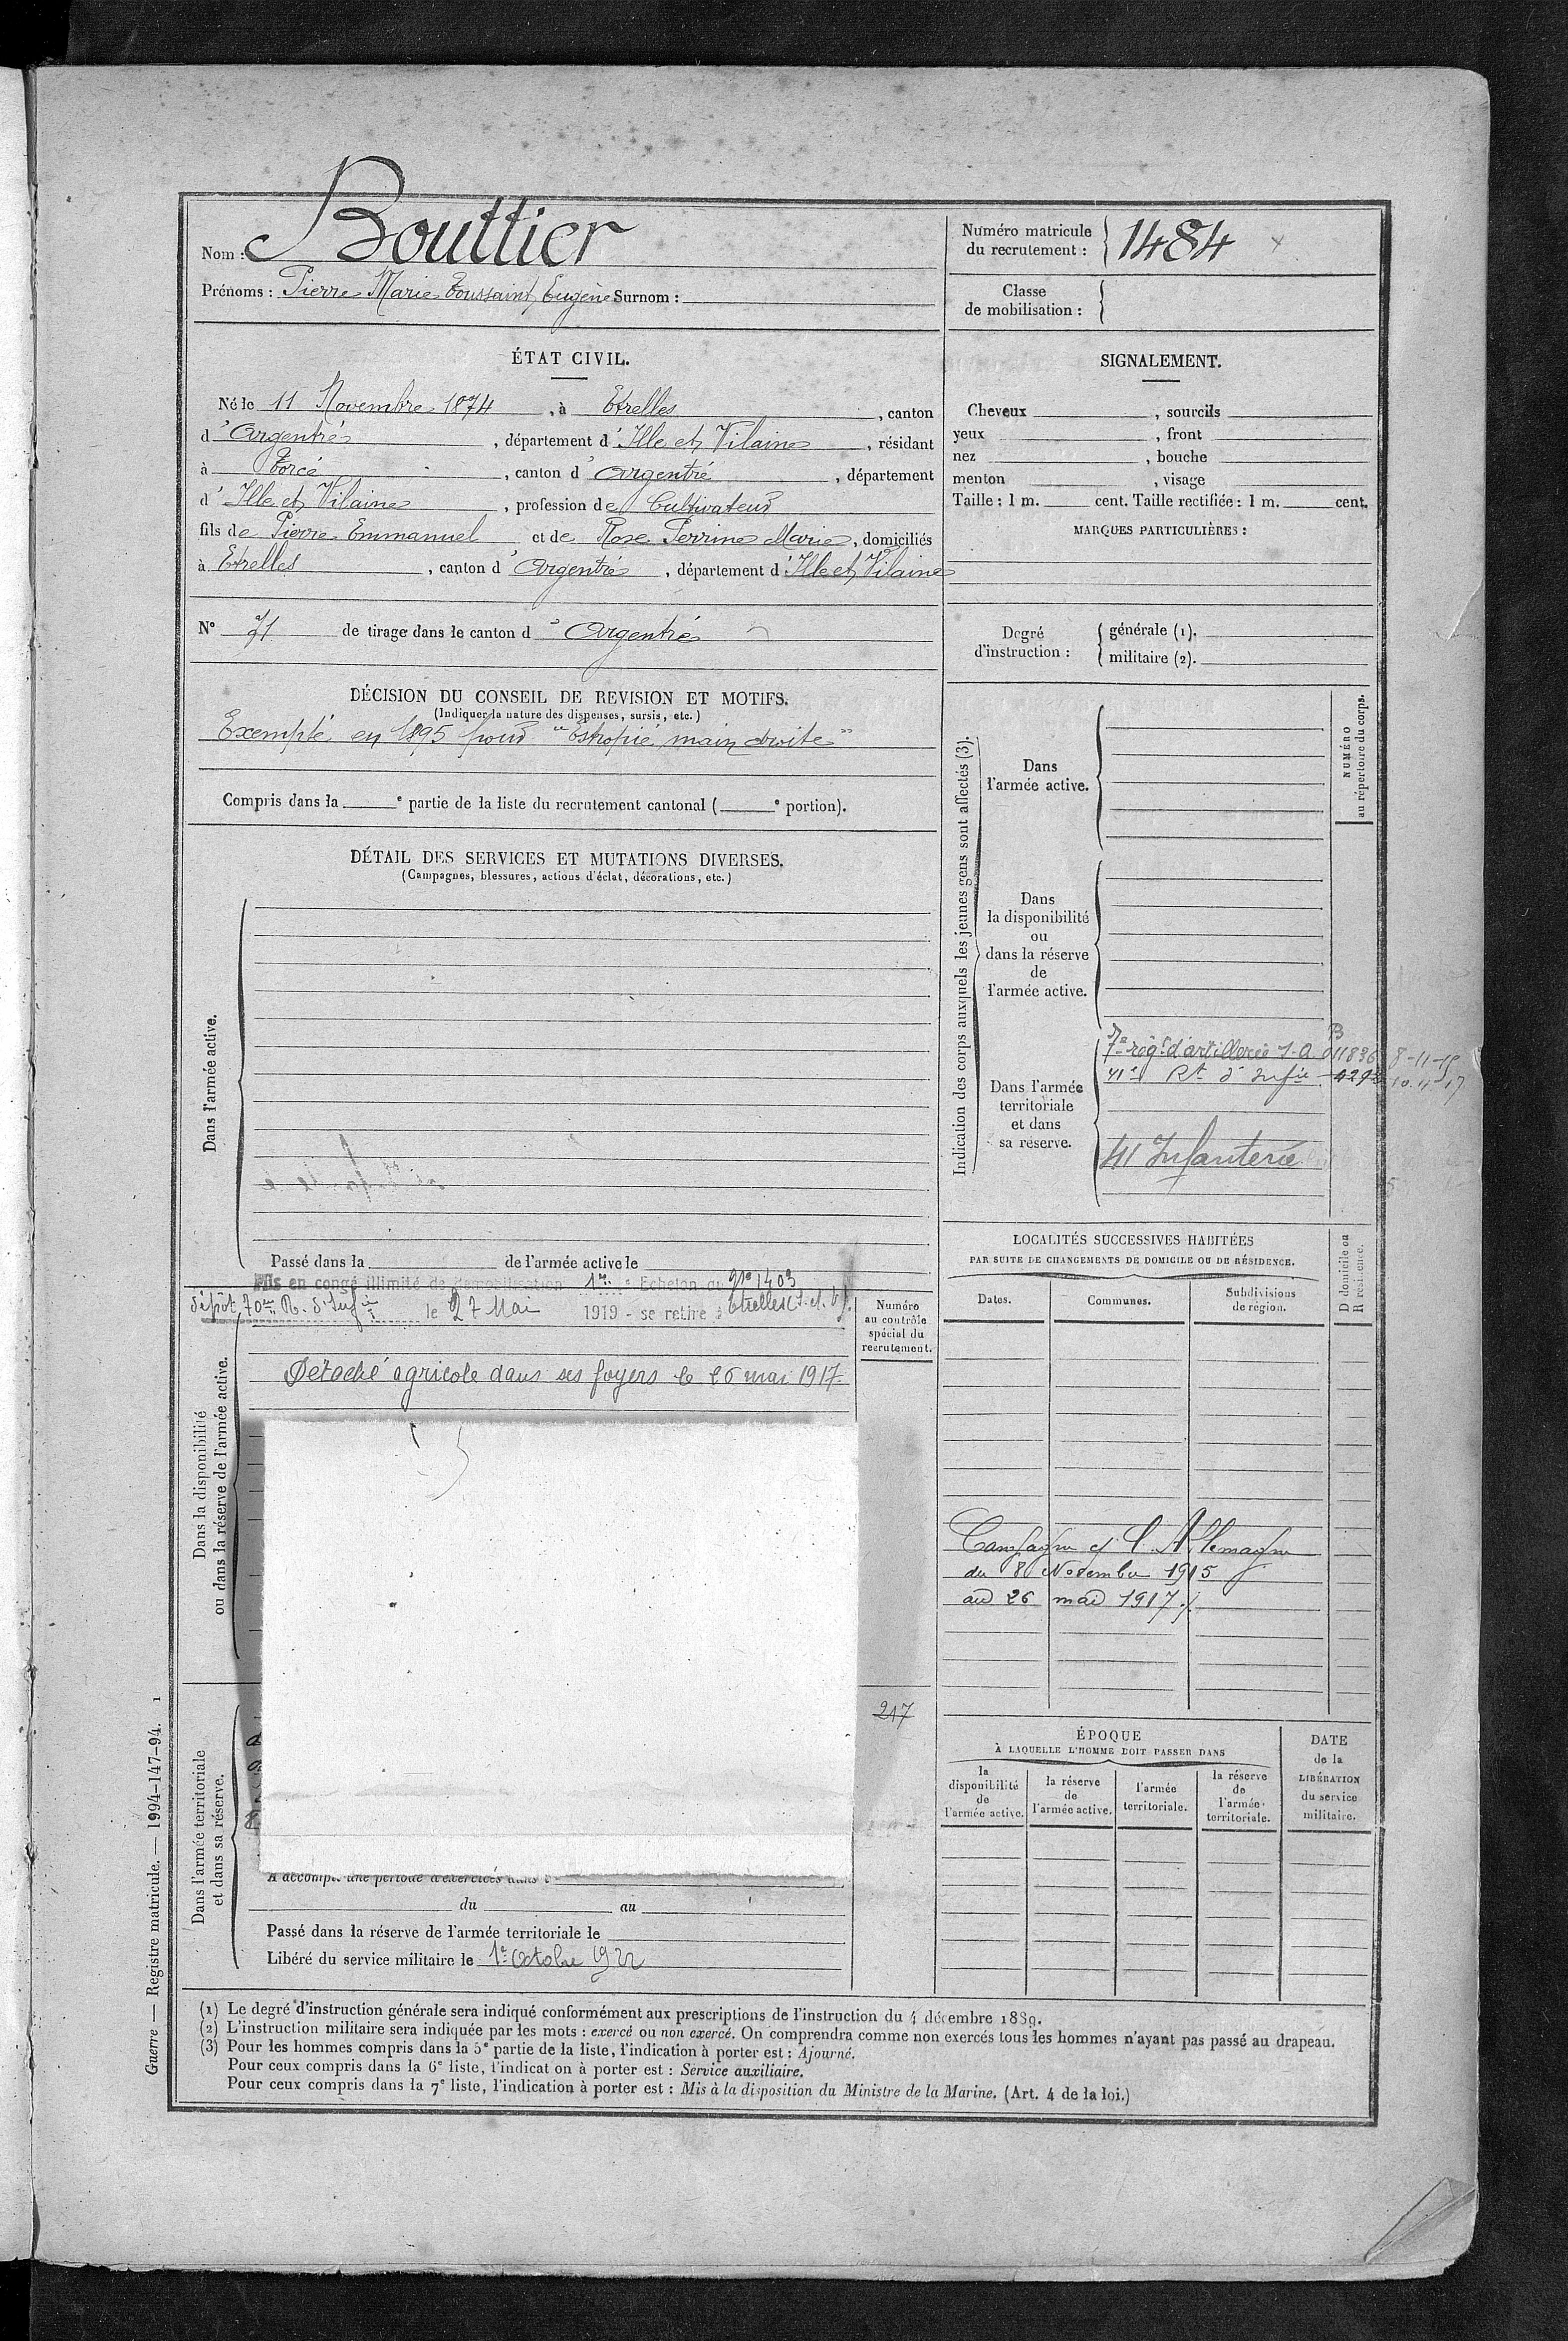 Nom : Bouttier
Prénoms : Pierre Marie Toussaint Eugène Surnom :
Numéro matricule
du recrutement : 1484
Classe
de mobilisation :
ÉTAT CIVIL.
Né le 11 Novembre 1874, à Etrelles, canton
d'Argentré, département d'Ille et Vilaine, résidant
à Torcé, canton d'Argentré, département
d'Ille et Vilaine, profession de Cultivateur
fils de Pierre Emmanuel et de Rose Perrine Marie, domiciliés
à Etrelles, canton d'Argentré, département d'Ille et Vilaine
N° de tirage dans le canton d'Argentré
DÉCISION DU CONSEIL DE REVISION ET MOTIFS.
(Indiquer la nature des dispenses, sursis, etc.)
Exempté en 1895 pour "Estropié main droite"
Compris dans la e partie de la liste du recrutement cantonal ( e portion).
DÉTAIL DES SERVICES ET MUTATIONS DIVERSES.
(Campagnes, blessures, actions d'éclat, décorations, etc.)
Dans l'armée active.
Passé dans la de l'armée active le
Mis en congé illimité de démobilisation 1er Echelon no 1403
dépôt 70me R. d'Infie le 27 Mai 1919 - se retire à Etrelles (I. et V.)
Numéro
au contrôle
spécial du
recrutement.
Dans la disponibilité
ou dans la réserve de l'armée active.
Détaché agricole dans ses foyers le 26 mai 1917
217
Dans l'armée territoriale
et dans sa réserve.
A accompli une période d'exercices dans
du au
Passé dans la réserve de l'armée territoriale le
Libéré du service militaire le 1er Octobre 1922
SIGNALEMENT.
Cheveux , sourcils
yeux , front
nez , bouche
menton , visage
Taille : 1 m. cent. Taille rectifiée : 1 m. cent.
MARQUES PARTICULIÈRES :
Degré
d'instruction :
générale (1).
militaire (2).
Indication des corps auxquels les jeunes gens sont affectés (3).
NUMÉRO
au répertoire du corps.
Dans
l'armée active.
Dans
la disponibilité
ou
dans la réserve
de
l'armée active.
Dans l'armée
territoriale
et dans
sa réserve.
7e régt d'artillerie 011836 8-11-15
41e Rt d'Infie 10.11.17
41 Infanterie
LOCALITÉS SUCCESSIVES HABITÉES
PAR SUITE DE CHANGEMENTS DE DOMICILE OU DE RÉSIDENCE.
D domicile ou
R résidence.
Dates. Communes. Subdivisions
de région.
Campagne c/ l'Allemagne
du 8 Novembre 1915
au 26 mai 1917
ÉPOQUE
À LAQUELLE L'HOMME DOIT PASSER DANS
la
disponibilité
de
l'armée active.
la réserve
de
l'armée active.
l'armée
territoriale.
la réserve
de
l'armée
territoriale.
DATE
de la
LIBÉRATION
du service
militaire.
(1) Le degré d'instruction générale sera indiqué conformément aux prescriptions de l'instruction du 4 décembre 1889.
(2) L'instruction militaire sera indiquée par les mots : exercé ou non exercé. On comprendra comme non exercés tous les hommes n'ayant pas passé au drapeau.
(3) Pour les hommes compris dans la 5e partie de la liste, l'indication à porter est : Ajourné.
Pour ceux compris dans la 6e liste, l'indication à porter est : Service auxiliaire.
Pour ceux compris dans la 7e liste, l'indication à porter est : Mis à la disposition du Ministre de la Marine. (Art. 4 de la loi.)
Guerre — Registre matricule. — 1994-147-94. 1